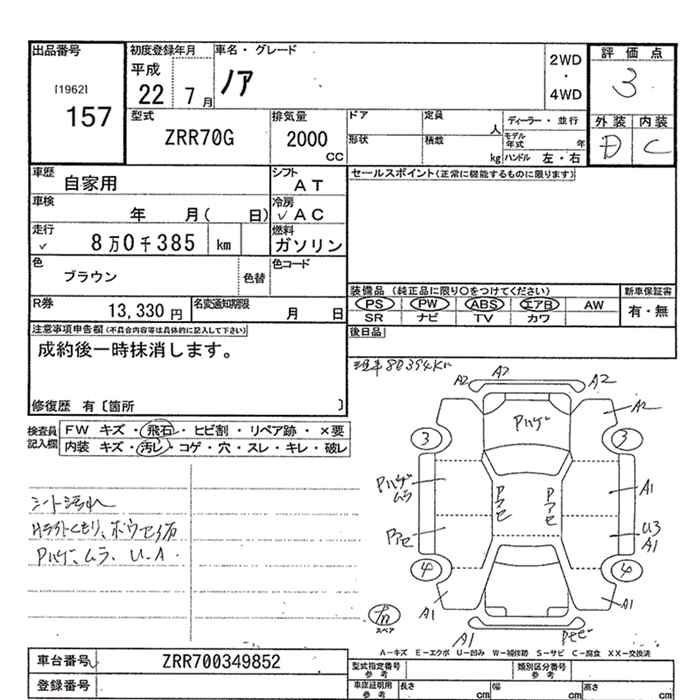 出品番号
[1962]
157
初度登録年月
平成
22 7月
車名・グレード
ノア
2WD
・
4WD
評価点
3
外装 内装
D C
型式
ZRR70G
排気量
2000
CC
ドア
形状
定員
人
積載
kg
ディーラー・並行
モデル年式 年
ハンドル 左・右
車歴
自家用
シフト
AT
車検
年 月( 日)
冷房
✓AC
走行
✓ 8万0千385 km
燃料
ガソリン
色
ブラウン
色替
色コード
R券
13,330円
名変通知期限
月 日
セールスポイント(正常に機能するものに限ります)
装備品(純正品に限り○をつけてください)
PS PW ABS エアB AW
SR ナビ TV カワ
新車保証書
有・無
後日品
注意事項申告欄(不具合内容等は具体的に記入して下さい)
成約後一時抹消します。
修復歴 有〔箇所 〕
検査員記入欄
FW キズ・飛石・ヒビ割・リペア跡・×要
内装 キズ・汚レ・コゲ・穴・スレ・キレ・破レ
シート汚れ
Pハゲ、ムラ、U.A.
80394K
A2 A2 A2
A2
Pハゲ
3 3
Pハゲ
ムラ
Pアセ Pアセ
A1
Pアセ
U3
A1
4 4
A1 A1
スペア
A1
A-キズ E-エクボ U-凹み W-補修跡 S-サビ C-腐食 XX-交換済
車台番号
ZRR700349852
登録番号
型式指定番号
参考
類別区分番号
参考
車庫証明用
参考
長さ cm
幅 cm
高さ cm